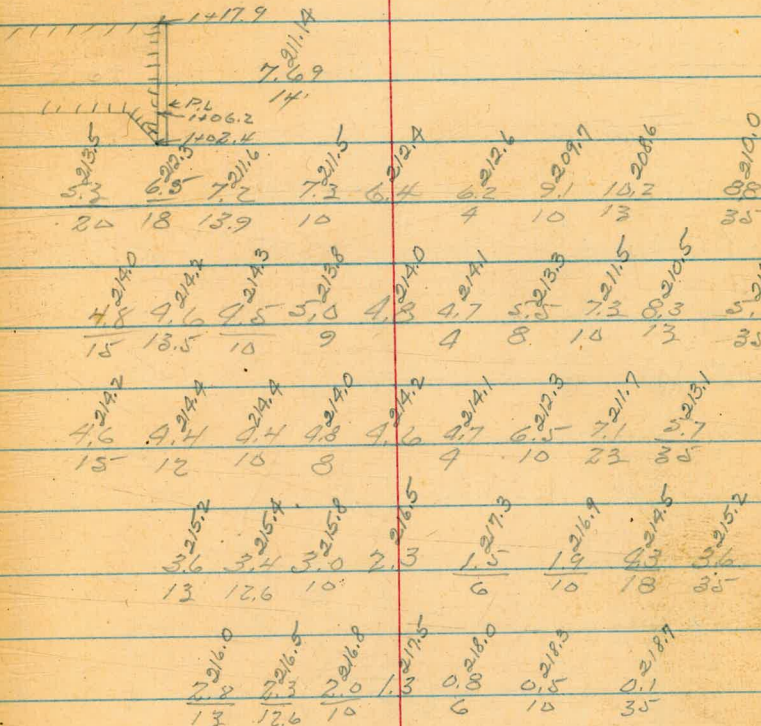 1+17.9
211.14
7.69
14'
P.L
1+06.2
1+02.4
213.5 212.3 211.6 211.5 212.4 212.6 209.7 208.6 210.0
5.3 6.5 7.2 7.3 6.4 6.2 9.1 10.2 8.8
20 18 13.9 10 4 10 13 35
214.0 214.2 214.3 213.8 214.0 214.1 213.3 211.5 210.5
4.8 4.6 4.5 5.0 4.8 4.7 5.5 7.3 8.3
15 13.5 10 9 4 8 10 13 35
214.2 214.4 214.4 214.0 214.2 214.1 212.3 211.7 213.1
4.6 4.4 4.4 4.8 4.6 4.7 6.5 7.1 5.7
15 12 10 8 4 10 23 35
215.2 215.4 215.8 216.5 217.3 216.9 214.5 215.2
3.6 3.4 3.0 2.3 1.5 1.9 4.3 3.6
13 12.6 10 6 10 18 35
216.0 216.5 216.8 217.5 218.0 218.3 218.7
2.8 2.3 2.0 1.3 0.8 0.5 0.1
13 12.6 10 6 10 35